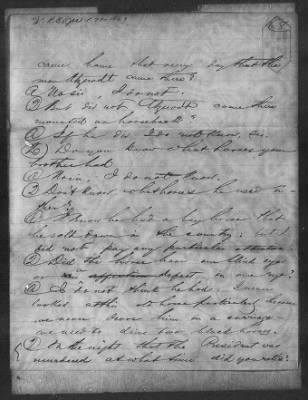 came home that very day that the
man Atzerodt came there?
A No sir, I do not.
Q But did not Atzerodt come there
mounted on horseback?
A If he did I do not know, sir.
Q Do you know what horses your
brother had
A No sir, I do not know.
Q Don't know what horses he used to
A I know he had a bay horse that
he sold down in the country; but I
did not pay any particular attention.
Q Did the horse have one blind eye
or defect in one eye?
A I do not think he had. I never
looked at the horse particularly because
we never drove him in a carriage
we used to drive two black horses.
Q On the night that the President was
murdered at what time did you retire?